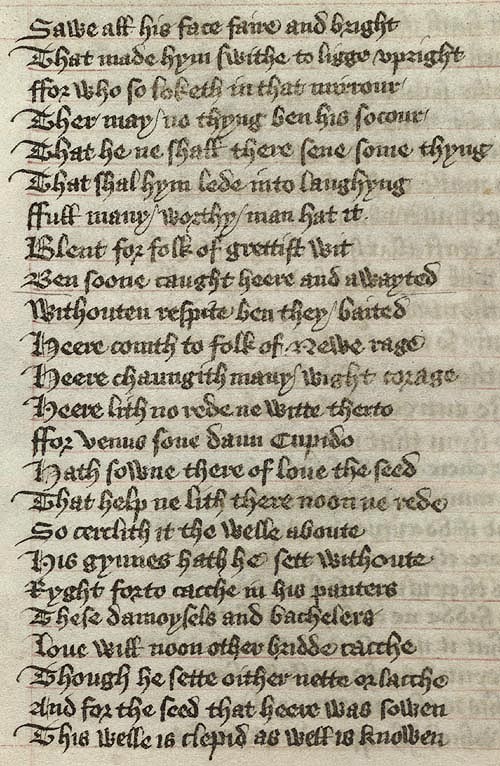 Sawe all his face faire and bright
That made hym swithe to ligge vpright
ffor who so loketh in that mirrour
Ther may / no thyng ben his socour
That he ne shall there sene some thyng
That shal hym lede into laughyng
ffull many / worthy / man hat it
Blent for folk of grettist wit
Ben soone caught heere and awayted
Withouten respite ben they / baited
Heere comth to folk of newe rage
Heere chaungith many / wight corage
Heere lith no rede ne witte therto
ffor venus sone daun Cupido
Hath sowne there of loue the seed
That help ne lith there noon ne rede
So cerclith it the welle aboute
His gynnes hath he sett withoute
Ryght forto cacche in his panters
These damoysels and bachelers
Loue will noon other bridde cacche
Though he sette either nette or lacche
And for the seed that heere was sowen
This welle is clepid as well is knowen